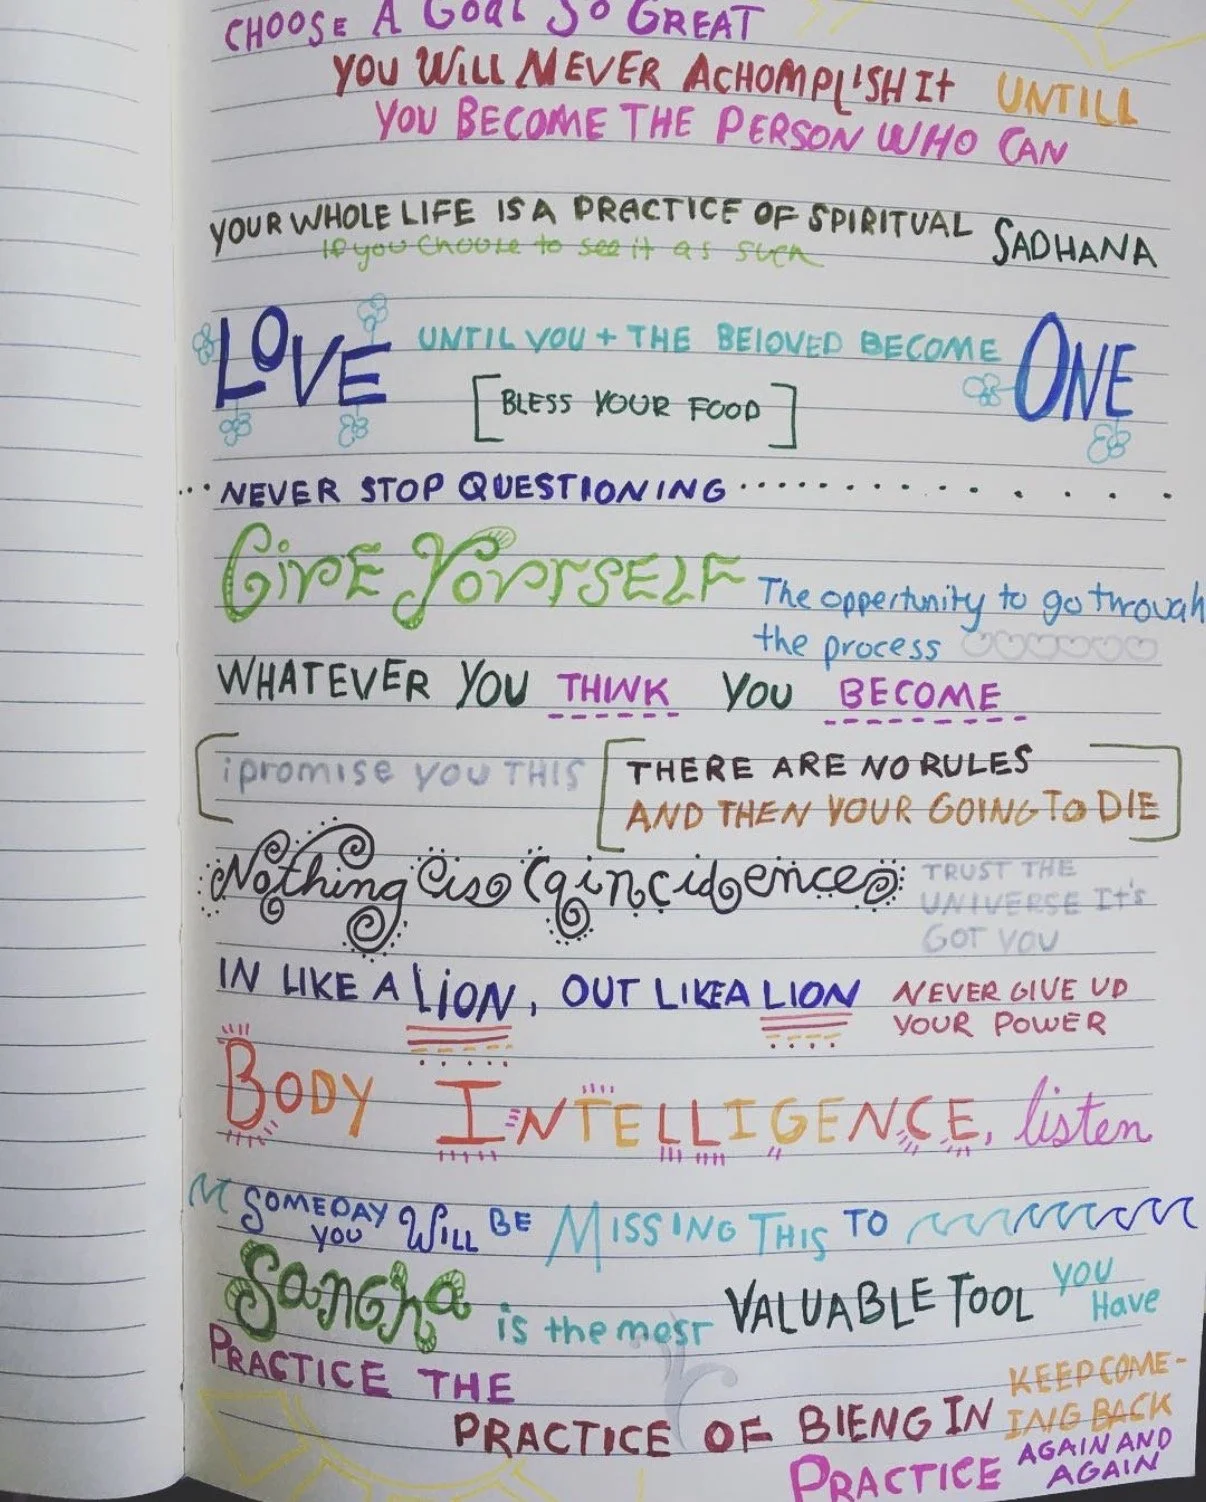 CHOOSE A GOAL SO GREAT
YOU WILL NEVER ACHOMPLISH It UNTILL
YOU BECOME THE PERSON WHO CAN
YOUR WHOLE LIFE IS A PRACTICE OF SPIRITUAL SADHANA
If you choose to see it as such
LOVE UNTIL YOU + THE BELOVED BECOME ONE
[BLESS YOUR FOOD]
...NEVER STOP QUESTIONING...............
GIVE YOURSELF The oppertunity to go through
the process
WHATEVER YOU THINK YOU BECOME
[i promise you THIS [THERE ARE NO RULES
AND THEN YOUR GOING TO DIE]
Nothing is Coincidence TRUST THE
UNIVERSE It's
GOT YOU
IN LIKE A LION, OUT LIKE A LION NEVER GIVE UP
YOUR POWER
BODY INTELLIGENCE, listen
SOMEDAY YOU WILL BE MISSING THIS TO
Sangha is the most VALUABLE TOOL YOU Have
PRACTICE THE
PRACTICE OF BIENG IN
PRACTICE
KEEP COME-
ING BACK
AGAIN AND
AGAIN